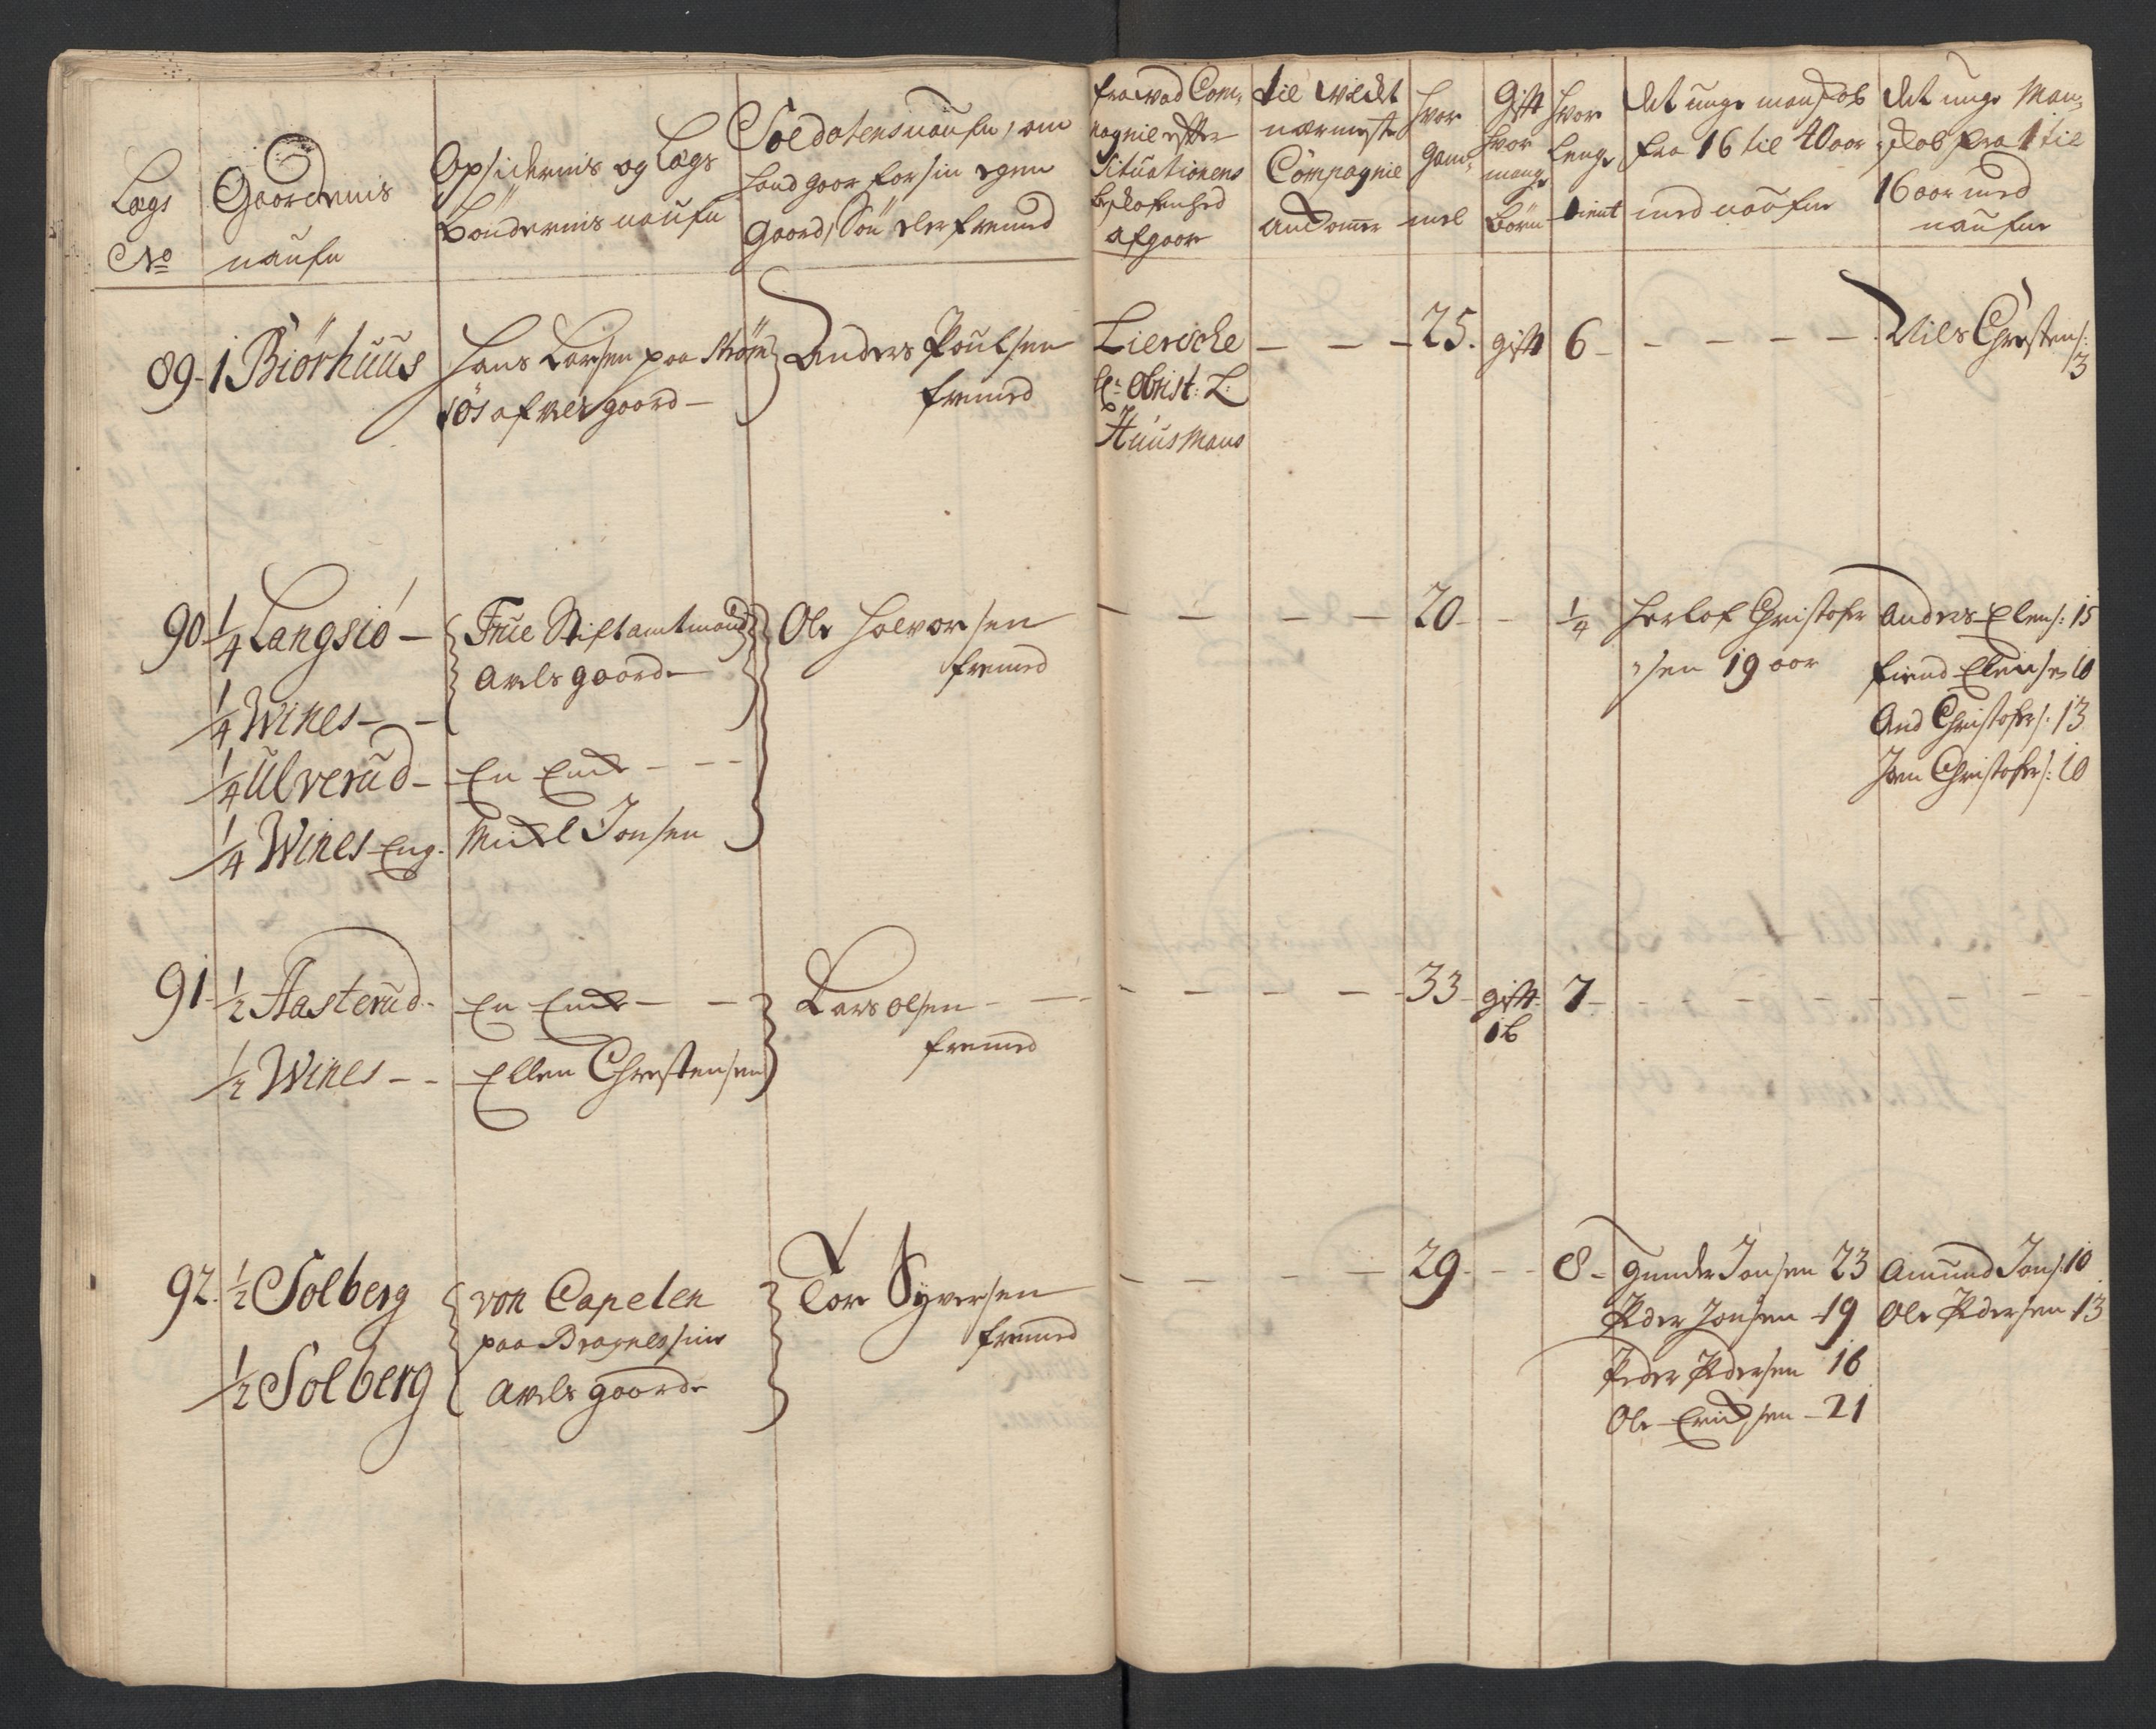 Lægs
No
Gaardernis
naufn
Opsidernis og Lægs
Böndernis naufn
Soldatens naufn, om
hand gaar for sin egen
gaard, Sön eller fremed
fra vad Com-
pagnie efter
Situationens
beskafenhed
afgaar
til vildet
nærmeste
Compagnie
ankomer
hvor
gam-
mel
Gift
hvor
mange
börn
hvor
lenge
tient
det unge manskab
fra 16 til 40 aar
med naufne
det unge Man-
skab fra 1 til
16 aar med
naufne
89- 1 Biörhuus
Hans Larsen paa Ström
söe afvels gaard -
Anders Poulsen
fremed
Liersche
Hr: Obrist: L:
Huusmans
- - - 25. gift 6 - - - - - -
Nils Chrestens:
13
90- 1/4 Langsiö -
1/4 Wines - -
1/4 Ulverud -
1/4 Wines Eng.
Frue Stiftamtmand
avels gaard -
En Enke - - -
Mickel Jonsen
Ole Halvorsen
fremed
- - - - 20 - - 1/4
Herlof Christofer
sen 19 aar
Anders Elens: 15
fiend Elensen 10
And Christofers: 13
Jon Christofers: 10
91- 1/2 Haasterud -
1/2 Wines - -
En Enke - -
Ellen Chrestensen
Lars Olsen - -
fremed
- - - - 33 - gift - 7 - - - - - - - -
1 b
92. 1/2 Solberg
1/2 Solberg
von Capelen
paa Bragnes sine
avels gaarde
Tore Syversen
fremed
- - - - 29 - - - 8 -
Gunder Jonsen 23
Peder Jonsen - 19
Peder Pedersen 16
Ole Ericksen - 21
Amund Jons: 10
Ole Pedersen 13